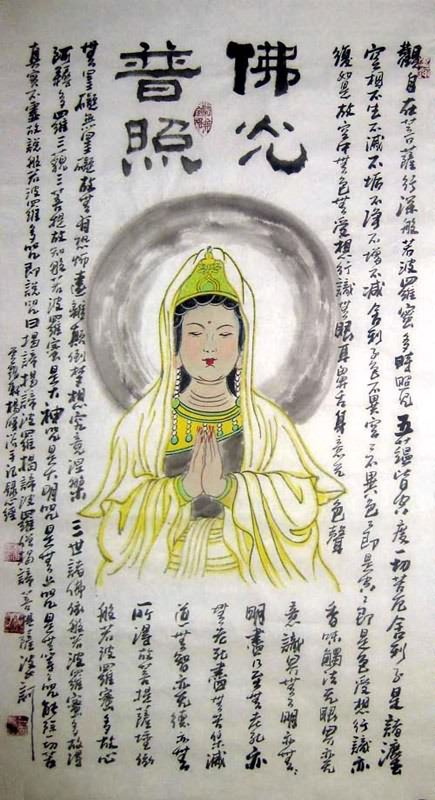 佛光
普照
觀自在菩薩行深般若波羅蜜多時照見五蘊皆空度一切苦厄舍利子是諸法
空相不生不滅不垢不淨不增不減舍利子色不異空空不異色色即是空空即是色受想行識亦
復如是故空中無色無受想行識無眼耳鼻舌身意無色聲
香味觸法無眼界無
意識界無無明亦無
明盡乃至無老死亦
無老死盡無苦集滅
道無智亦無得亦無
所得故菩提薩埵依
般若波羅蜜多故心
無罣礙無罣礙故無有恐怖遠離顛倒夢想究竟涅槃三世諸佛依般若波羅蜜多故得
阿耨多羅三藐三菩提故知般若波羅蜜是大神咒是大明咒是無上咒是無等等咒能除一切苦
真實不虛故說般若波羅多咒即說咒曰揭諦揭諦波羅揭諦波羅僧揭諦菩提薩婆訶